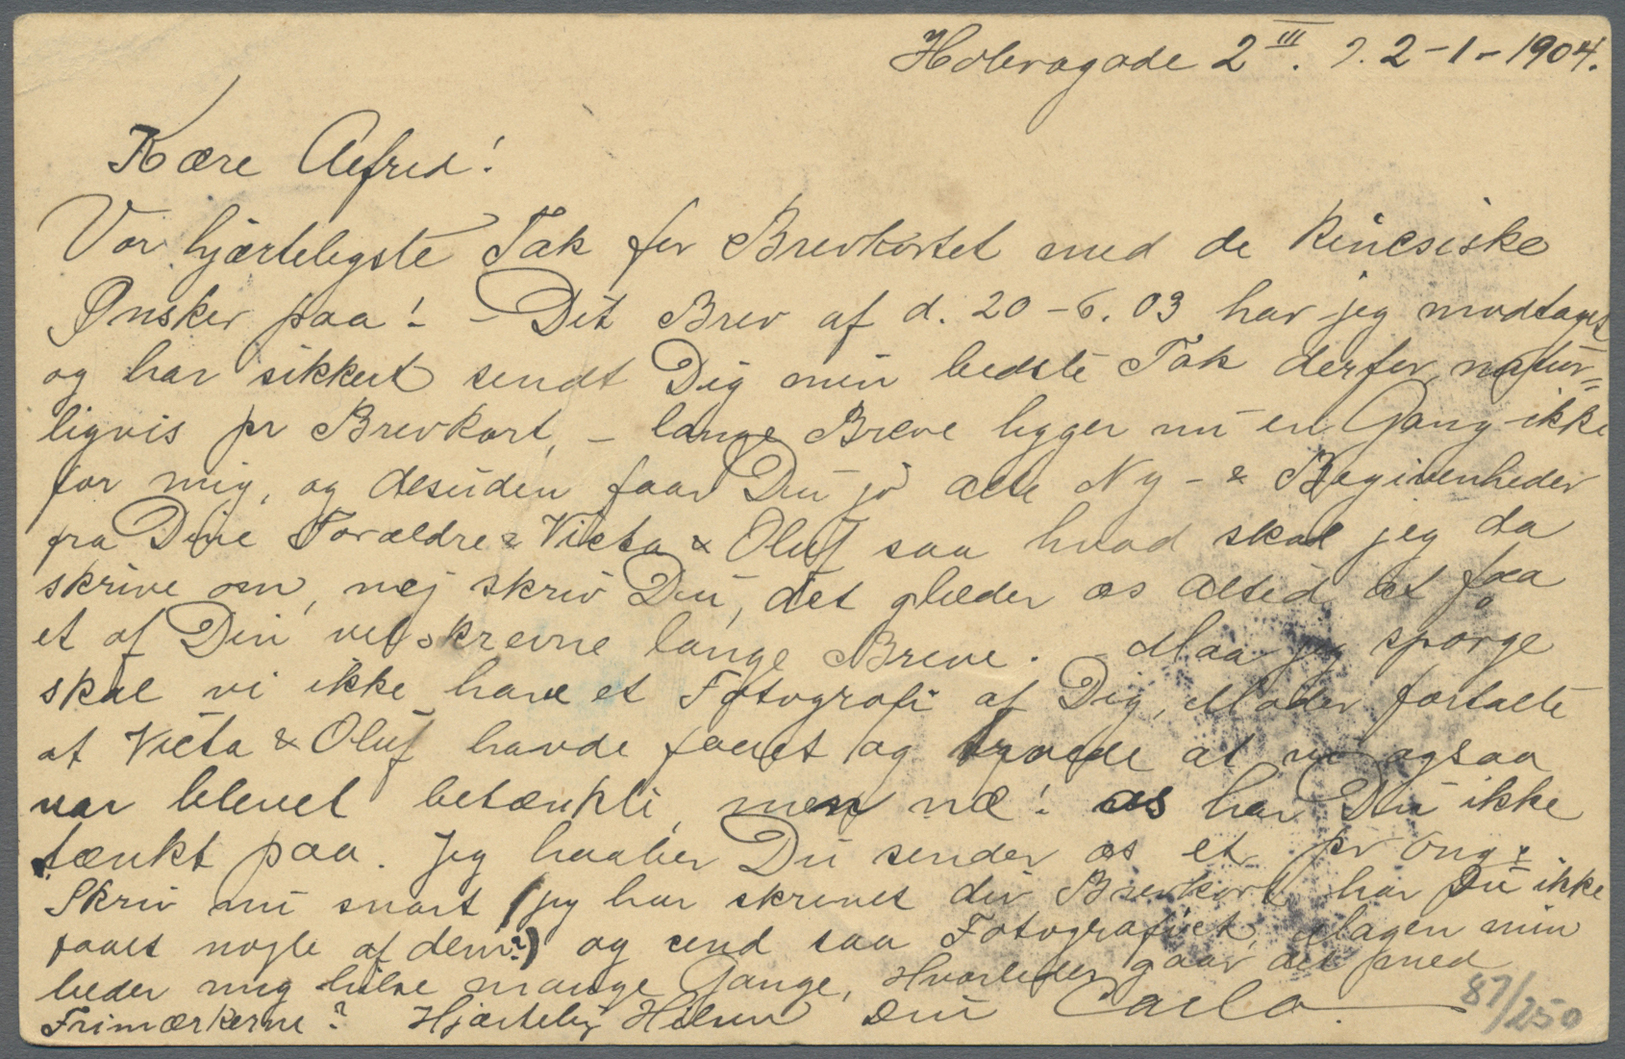 Holbergade 2 III. d. 2-1-1904.
Kære Alfred!
Vor hjærteligste Tak for Brevkortet med de Kinesiske
Ønsker paa! - Dit Brev af d. 20-6. 03 har jeg modtaget
og har sikkert sendt Dig min bedste Tak derfor, natur=
ligvis pr Brevkort, - lange Breve ligger nu en Gang ikke
for mig, og desuden faar Du jo alle Ny- & Begivenheder
fra Dine Forældre & Victa & Oluf saa hvad skal jeg da
skrive om, nej skriv Du, det glæder os altid at faa
et af Din velskrevne lange Breve. - Maa jeg spørge
skal vi ikke have et Fotografi af Dig, Moder fortalte
at Victa & Oluf havde faaet og troede at vi ogsaa
var blevet betænkt, men næ! os har Du ikke
tænkt paa. Jeg haaber Du sender os et pr omg.
Skriv nu snart (jeg har skrevet div Brevkort har Du ikke
faaet nogle af dem?) og send saa Fotografiet, Magen min
beder mig hilse mange Gange, Hvorledes gaar det med
Frimærkerne? Hjærtelig Hilsen Din Carlo.
87/250